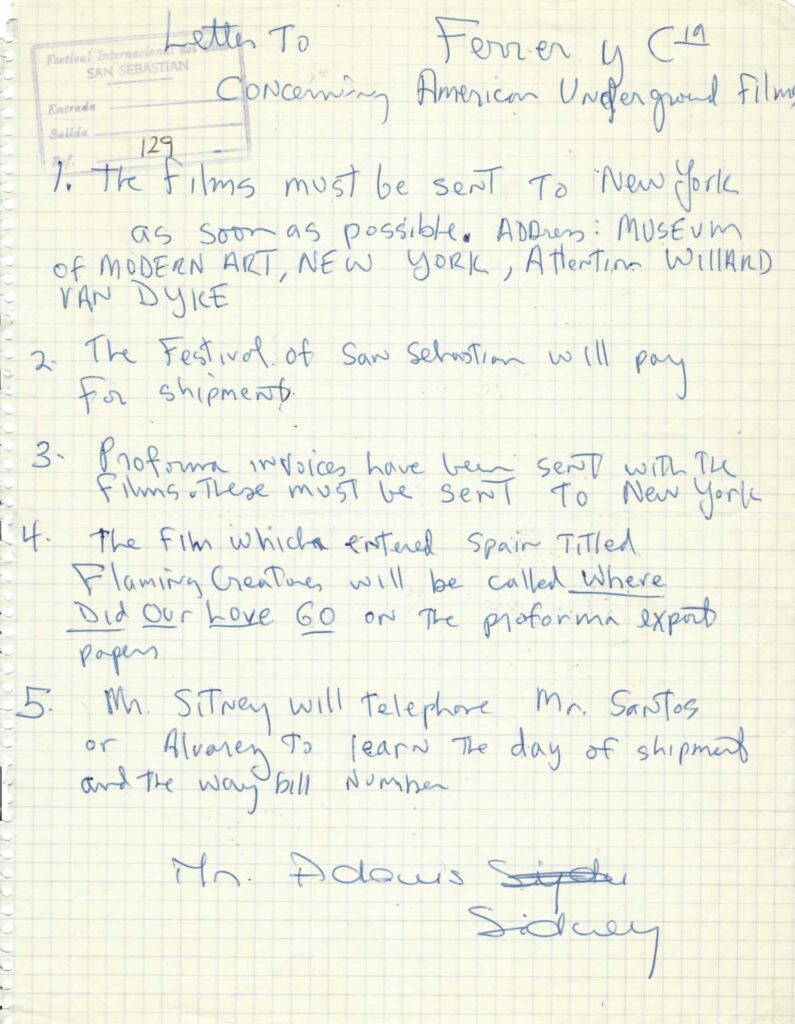 Letter To Ferrer y Cia
Concerning American Underground Films
Festival Internacional del
SAN SEBASTIAN
Entrada
Salida
Ref. 129
1. The films must be sent To New York
as soon as possible. ADDress: MUSEUM
of MODERN ART, NEW YORK, Attention WILLARD
VAN DYKE
2. The Festival of San Sebastian will pay
for shipment
3. Proforma invoices have been sent with the
films. These must be sent To New York
4. The film which entered Spain Titled
Flaming Creatures will be called Where
Did Our Love GO on the proforma export
papers
5. Mr. SITNey will telephone Mr. Santos
or Alvarez To learn the day of shipment
and the way bill Number
Mr. Adams
Sidney